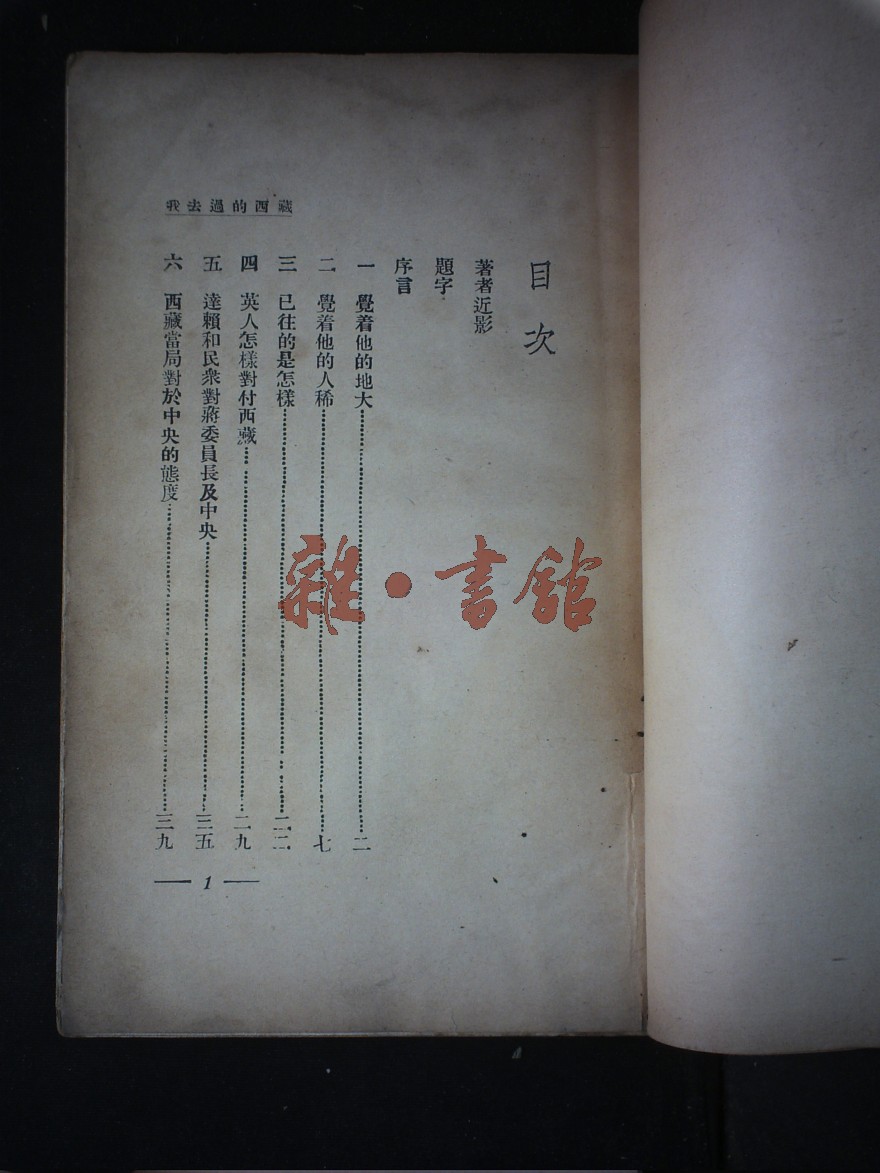 我去過的西藏
目次
著者近影
題字
序言
一 覺着他的地大……二
二 覺着他的人稀……七
三 已往的是怎樣……二二
四 英人怎樣對付西藏……二九
五 達賴和民衆對蔣委員長及中央……三五
六 西藏當局對於中央的態度……三九
— 1 —
雜·書館